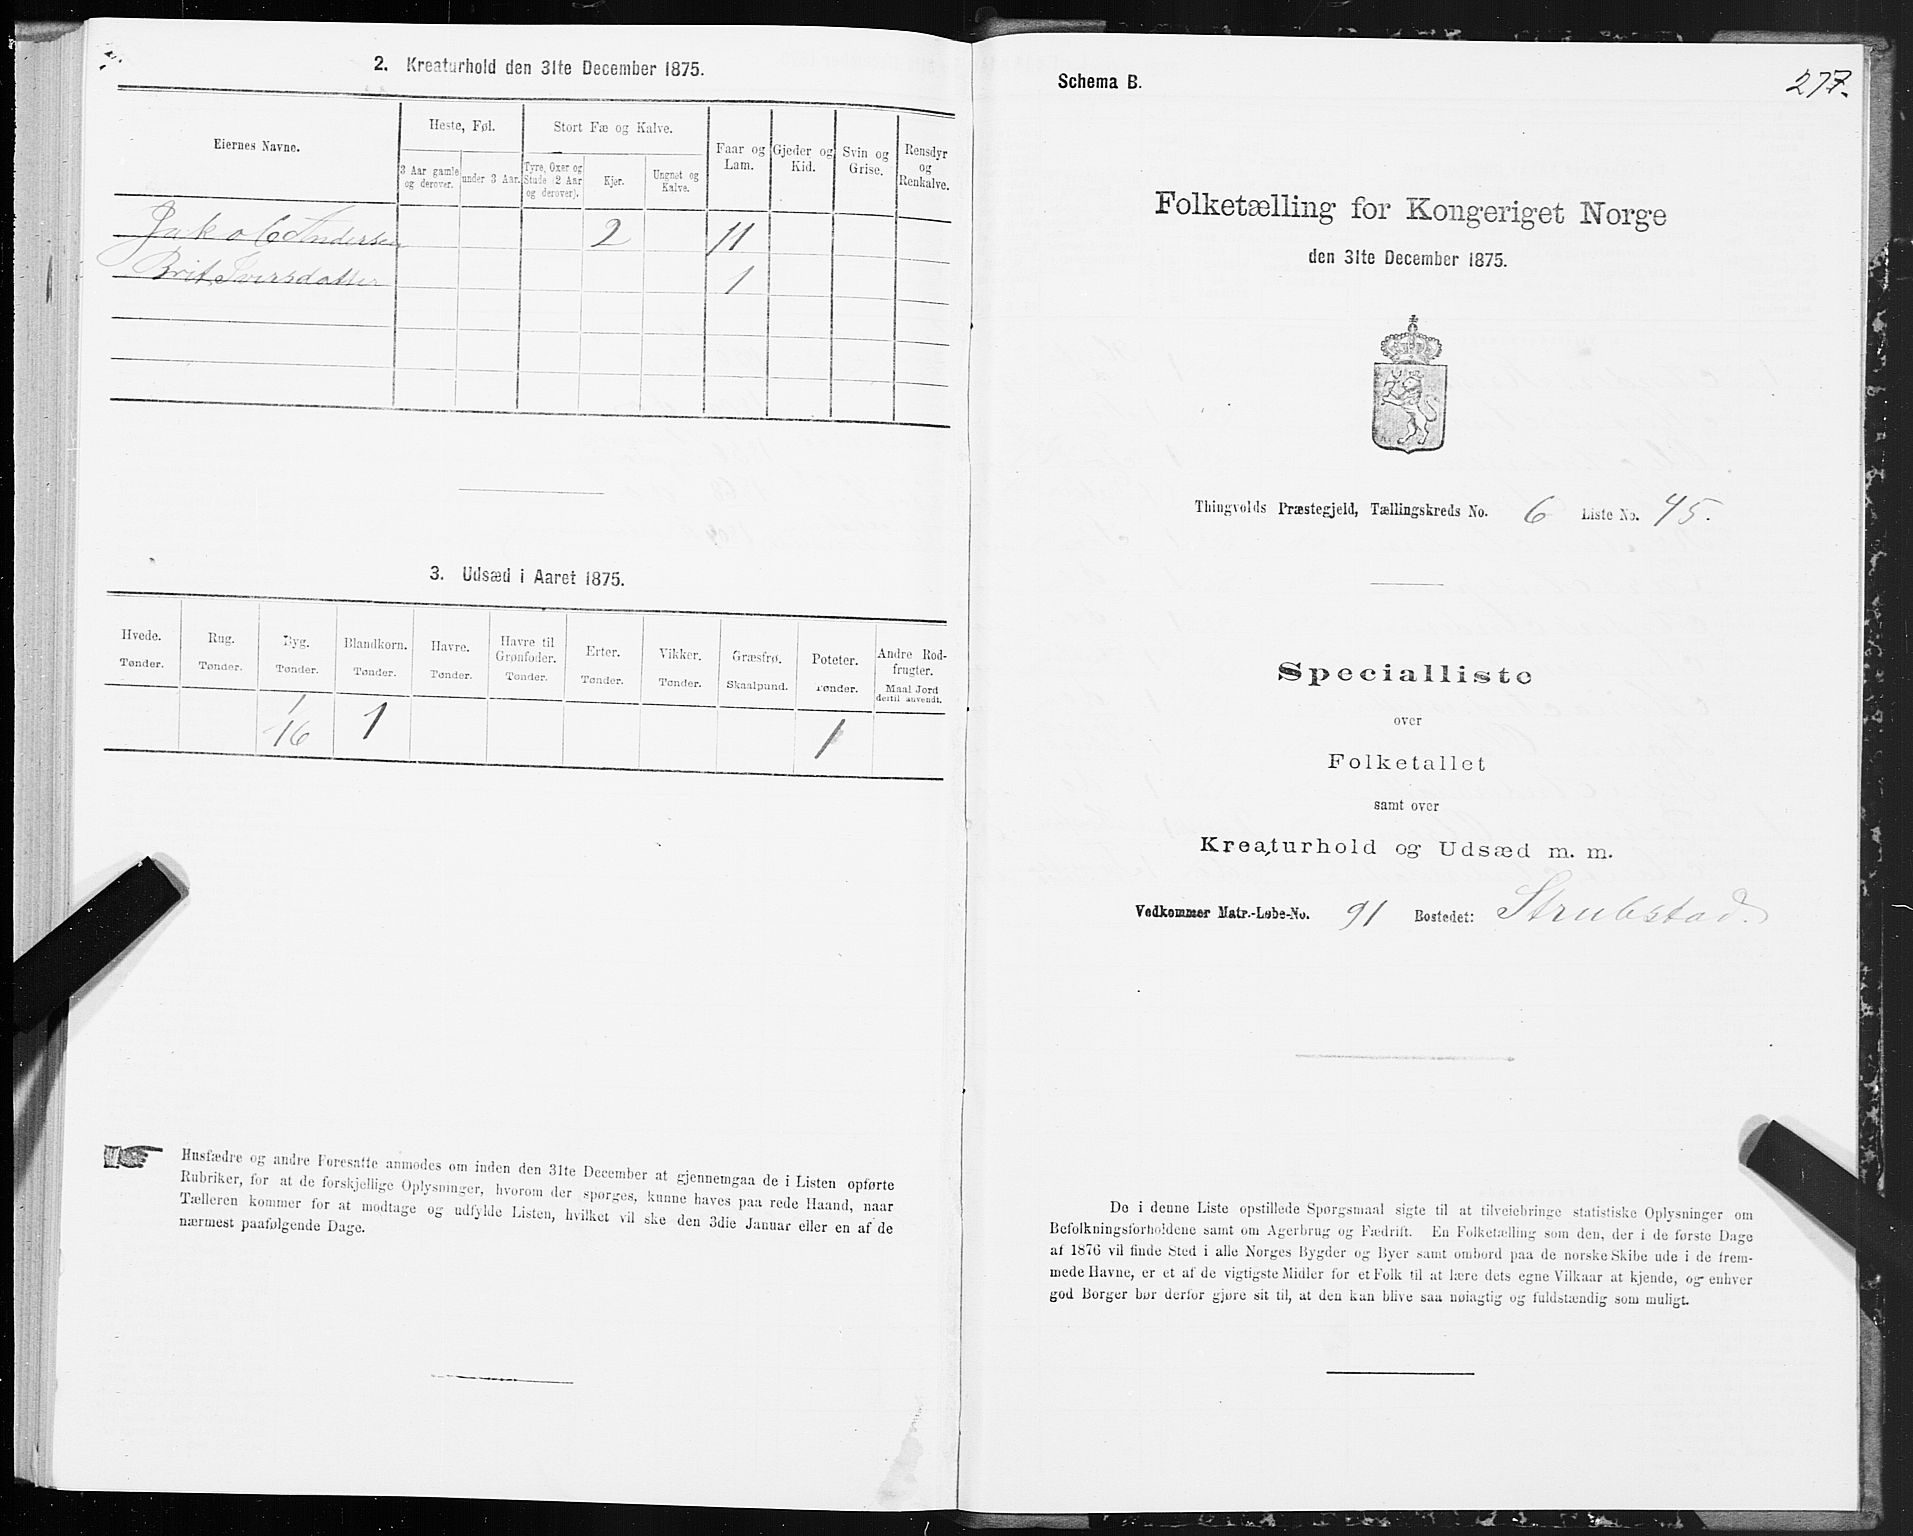 2. Kreaturhold den 31te December 1875.
Eiernes Navne.
Heste, Føl.
Stort Fæ og Kalve.
Faar og Lam.
Gjeder og Kid.
Svin og Grise.
Rensdyr og Renkalve.
3 Aar gamle og derover.
under 3 Aar.
Tyre, Oxer og Stude (2 Aar og derover).
Kjør.
Ungnet og Kalve.
Jakob Andersen 2 11
Brit Iversdatter 1
3. Udsæd i Aaret 1875.
Hvede. Rug. Byg. Blandkorn. Havre. Havre til Grønfoder. Erter. Vikker. Græsfrø. Poteter. Andre Rodfrugter.
Tønder. Tønder. Tønder. Tønder. Tønder. Tønder. Tønder. Tønder. Skaalpund. Tønder. Maal Jord dertil anvendt.
1/16 1 1
Husfædre og andre Foresatte anmodes om inden den 31te December at gjennemgaa de i Listen opførte
Rubriker, for at de forskjellige Oplysninger, hvorom der spørges, kunne haves paa rede Haand, naar
Tælleren kommer for at modtage og udfylde Listen, hvilket vil ske den 3die Januar eller en af de
nærmest paafølgende Dage.
Schema B.
277.
Folketælling for Kongeriget Norge
den 31te December 1875.
Thingvolds Præstegjeld, Tællingskreds No. 6 Liste No. 45.
Specialliste
over
Folketallet
samt over
Kreaturhold og Udsæd m. m.
Vedkommer Matr.-Løbe-No. 91 Bostedet: Strubstad.
De i denne Liste opstillede Spørgsmaal sigte til at tilveiebringe statistiske Oplysninger om
Befolkningsforholdene samt om Agerbrug og Fædrift. En Folketælling som den, der i de første Dage
af 1876 vil finde Sted i alle Norges Bygder og Byer samt ombord paa de norske Skibe ude i de frem-
mede Havne, er et af de vigtigste Midler for et Folk til at lære dets egne Vilkaar at kjende, og enhver
god Borger bør derfor gjøre sit til, at den kan blive saa nøiagtig og fuldstændig som muligt.